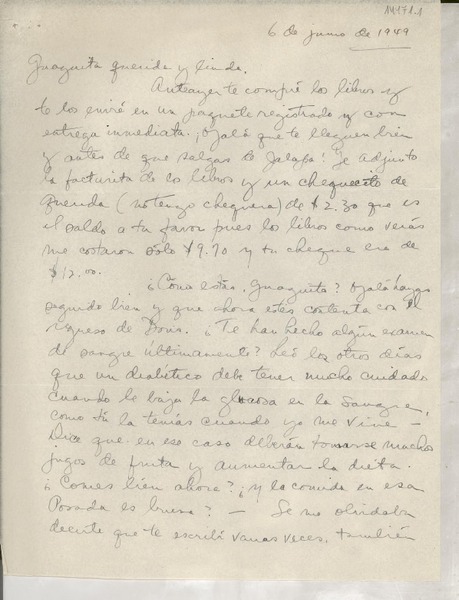 14171.1
6 de junio de 1949
Guaguita querida y linda,
Anteayer te compré los libros y
te los envié en un paquete registrado y con
entrega inmediata. ¡Ojalá que te lleguen bien
y antes de que salgas de Jalapa! Te adjunto
la facturita de los libros y un chequecito de
querida (no tengo chequera) de $2.30 que es
el saldo a tu favor pues los libros como verás
me costaron sólo $9.70 y tu cheque era de
$12.00.
¿Cómo estás, Guaguita? Ojalá hayas
seguido bien y que ahora estés contenta con el
regreso de Doris. ¿Te han hecho algún examen
de sangre últimamente? Leí los otros días
que un diabético debe tener mucho cuidado
cuando le baja la glucosa en la sangre,
como tú la tenías cuando yo me vine –
Dice que en ese caso deberán tomarse muchos
jugos de fruta y aumentar la dieta.
¿Comes bien ahora? ¿y la comida en esa
Posada es buena? – Se me olvidaba
decirte que te escribí varias veces, también